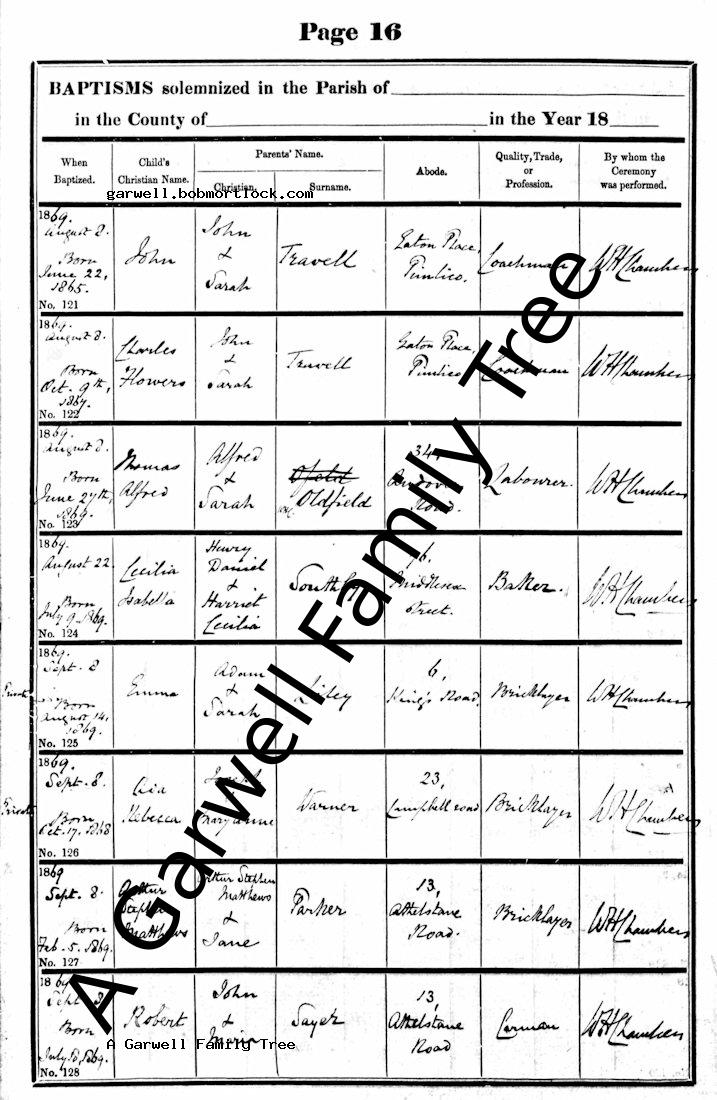 Page 16
BAPTISMS solemnized in the Parish of
in the County of in the Year 18
When Baptized.
Child's Christian Name.
Parents' Name.
Christian.
Surname.
Abode.
Quality, Trade, or Profession.
By whom the Ceremony was performed.
garwell.bobmortlock.com
1869.
August 8.
Born
June 22,
1865.
No. 121
John
John
&
Sarah
Travell
Eaton Place,
Pimlico.
Coachman
WH Chambers
1869.
August 8.
Born
Oct. 9th,
1867.
No. 122
Charles
Flowers
John
&
Sarah
Travell
Eaton Place,
Pimlico
Coachman
WH Chambers
1869.
August 8.
Born
June 27th,
1869.
No. 123
Thomas
Alfred
Alfred
&
Sarah
Oldfield
34,
Road.
Labourer.
WH Chambers
1869.
August 22.
Born
July 9. 1869.
No. 124
Cecilia
Isabella
Henry
Daniel
&
Harriet
Cecilia
76,
Middlesex
Street.
Baker.
WH Chambers
1869.
Sept. 8
Private
Born
August 14,
1869.
No. 125
Emma
Adam
&
Sarah
6,
King's Road.
Bricklayer
WH Chambers
1869.
Sept. 8.
Private
Born
Oct. 17. 1868
No. 126
Rebecca
Joseph
Mary Anne
Warner
23,
Campbell road
Bricklayer
WH Chambers
1869
Sept. 8.
Born
Feb. 5. 1869.
No. 127
Arthur
Stephen
Matthews
Arthur Stephen
Matthews
&
Jane
Parker
13,
Athelstane
Road.
Bricklayer
WH Chambers
1869
Sept. 8
Born
1869.
No. 128
Robert
John
&
Sayer
13,
Athelstane
Road
Carman
WH Chambers
A Garwell Family Tree
A Garwell Family Tree